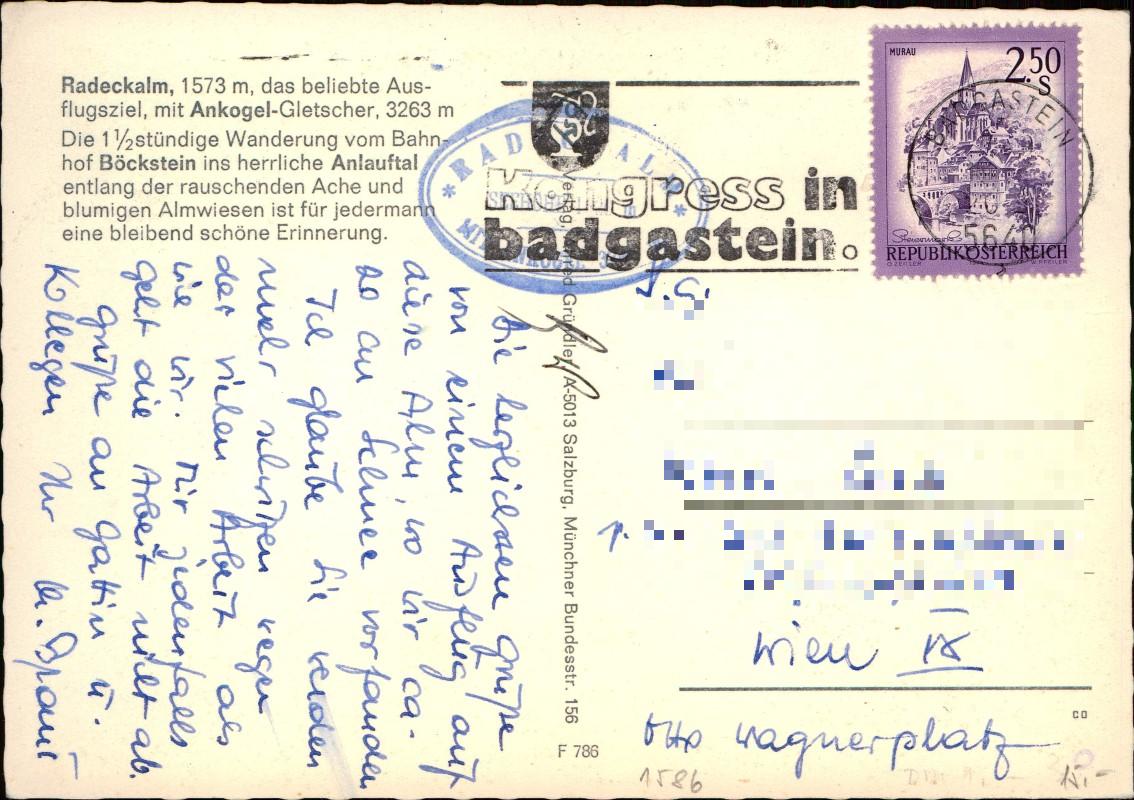 Radeckalm, 1573 m, das beliebte Aus-
flugsziel, mit Ankogel-Gletscher, 3263 m
Die 1½stündige Wanderung vom Bahn-
hof Böckstein ins herrliche Anlauftal
entlang der rauschenden Ache und
blumigen Almwiesen ist für jedermann
eine bleibend schöne Erinnerung.
* RADECKALM *
Kongress in
badgastein.
MURAU
2.50
S
BADGASTEIN
5640
Steiermark
REPUBLIK ÖSTERREICH
O. ZEILLER
W. PFEILER
Die herzlichsten Grüße
von einem Ausflug auf
diese Alm, wo wir ca-
20 cm Schnee vorfanden
Ich glaube Sie werden
mehr schwitzen wegen
der vielen Arbeit als
wie wir. Mir jedenfalls
geht die Arbeit nicht ab.
Grüße an Gattin u.
Kollegen Ihr
Gründler, A-5013 Salzburg, Münchner Bundesstr. 156
F 786
Wien IX
Otto Wagnerplatz
CO
1586
15,-